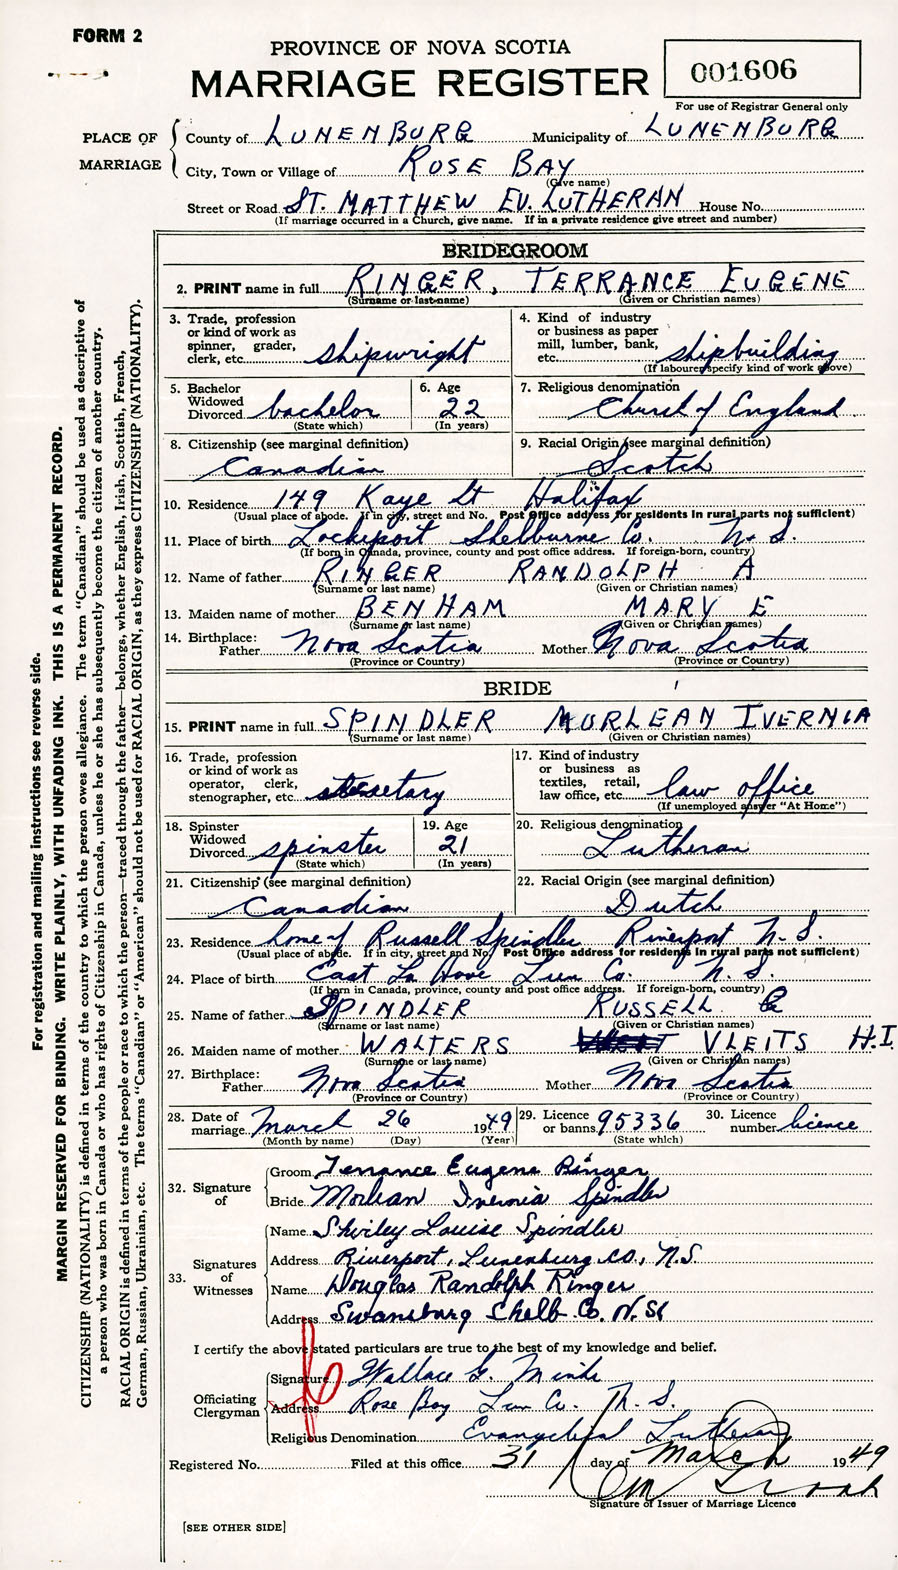 FORM 2
PROVINCE OF NOVA SCOTIA
MARRIAGE REGISTER
001606
For use of Registrar General only
PLACE OF MARRIAGE
County of LUNENBURG Municipality of LUNENBURG
City, Town or Village of ROSE BAY
(Give name)
Street or Road ST. MATTHEW EV. LUTHERAN House No.
(If marriage occurred in a Church, give name. If in a private residence give street and number)
BRIDEGROOM
2. PRINT name in full RINGER, TERRANCE EUGENE
(Surname or last name) (Given or Christian names)
3. Trade, profession or kind of work as spinner, grader, clerk, etc. shipwright
4. Kind of industry or business as paper mill, lumber, bank, etc. shipbuilding
(If labourer specify kind of work above)
5. Bachelor Widowed Divorced bachelor
(State which)
6. Age 22
(In years)
7. Religious denomination Church of England
8. Citizenship (see marginal definition) Canadian
9. Racial Origin (see marginal definition) Scotch
10. Residence 149 Kaye St Halifax
(Usual place of abode. If in city, street and No. Post Office address for residents in rural parts not sufficient)
11. Place of birth Lockeport Shelburne Co. N.S.
(If born in Canada, province, county and post office address. If foreign-born, country)
12. Name of father RINGER RANDOLPH A
(Surname or last name) (Given or Christian names)
13. Maiden name of mother BENHAM MARY E
(Surname or last name) (Given or Christian names)
14. Birthplace: Father Nova Scotia Mother Nova Scotia
(Province or Country) (Province or Country)
BRIDE
15. PRINT name in full SPINDLER MURLEAN IVERNIA
(Surname or last name) (Given or Christian names)
16. Trade, profession or kind of work as operator, clerk, stenographer, etc. secretary
17. Kind of industry or business as textiles, retail, law office, etc. law office
(If unemployed answer "At Home")
18. Spinster Widowed Divorced spinster
(State which)
19. Age 21
(In years)
20. Religious denomination Lutheran
21. Citizenship (see marginal definition) Canadian
22. Racial Origin (see marginal definition) Dutch
23. Residence home of Russell Spindler Riverport N.S.
(Usual place of abode. If in city, street and No. Post Office address for residents in rural parts not sufficient)
24. Place of birth East La Have Lun Co. N.S.
(If born in Canada, province, county and post office address. If foreign-born, country)
25. Name of father SPINDLER RUSSELL
(Surname or last name) (Given or Christian names)
26. Maiden name of mother WALTERS VLEITS H.I.
(Surname or last name) (Given or Christian names)
27. Birthplace: Father Nova Scotia Mother Nova Scotia
(Province or Country) (Province or Country)
28. Date of marriage March 26 1949
(Month by name) (Day) (Year)
29. Licence or banns 95336
(State which)
30. Licence number licence
32. Signature of
Groom Terrance Eugene Ringer
Bride Morlean Ivernia Spindler
33. Signatures of Witnesses
Name Shirley Louise Spindler
Address Riverport, Lunenburg, CO., N.S.
Name Douglas Randolph Ringer
Address Swansburg Shelb. Co. N.S.
I certify the above stated particulars are true to the best of my knowledge and belief.
Officiating Clergyman
Signature Wallace G. Minke
Address Rose Bay Lun Co. N.S.
Religious Denomination Evangelical Lutheran
Registered No. Filed at this office 31 day of March 1949
Signature of Issuer of Marriage Licence
[SEE OTHER SIDE]
For registration and mailing instructions see reverse side.
MARGIN RESERVED FOR BINDING. WRITE PLAINLY, WITH UNFADING INK. THIS IS A PERMANENT RECORD.
CITIZENSHIP (NATIONALITY) is defined in terms of the country to which the person owes allegiance. The term "Canadian" should be used as descriptive of
a person who was born in Canada or who has rights of Citizenship in Canada, unless he or she has subsequently become the citizen of another country.
RACIAL ORIGIN is defined in terms of the people or race to which the person—traced through the father—belongs, whether English, Irish, Scottish, French,
German, Russian, Ukrainian, etc. The terms "Canadian" or "American" should not be used for RACIAL ORIGIN, as they express CITIZENSHIP (NATIONALITY).